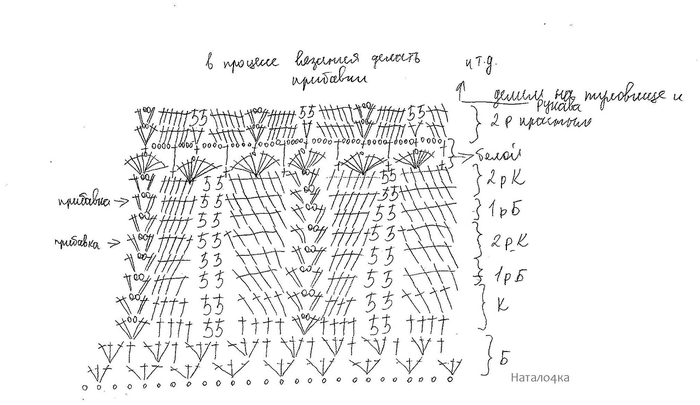 в процессе вязания делать
прибавки
и т.д.
делим на туловище и
рукава
2 р простых
белой
2 р К
прибавка
1 р Б
прибавка
2 р К
1 р Б
К
Б
Натало4ка